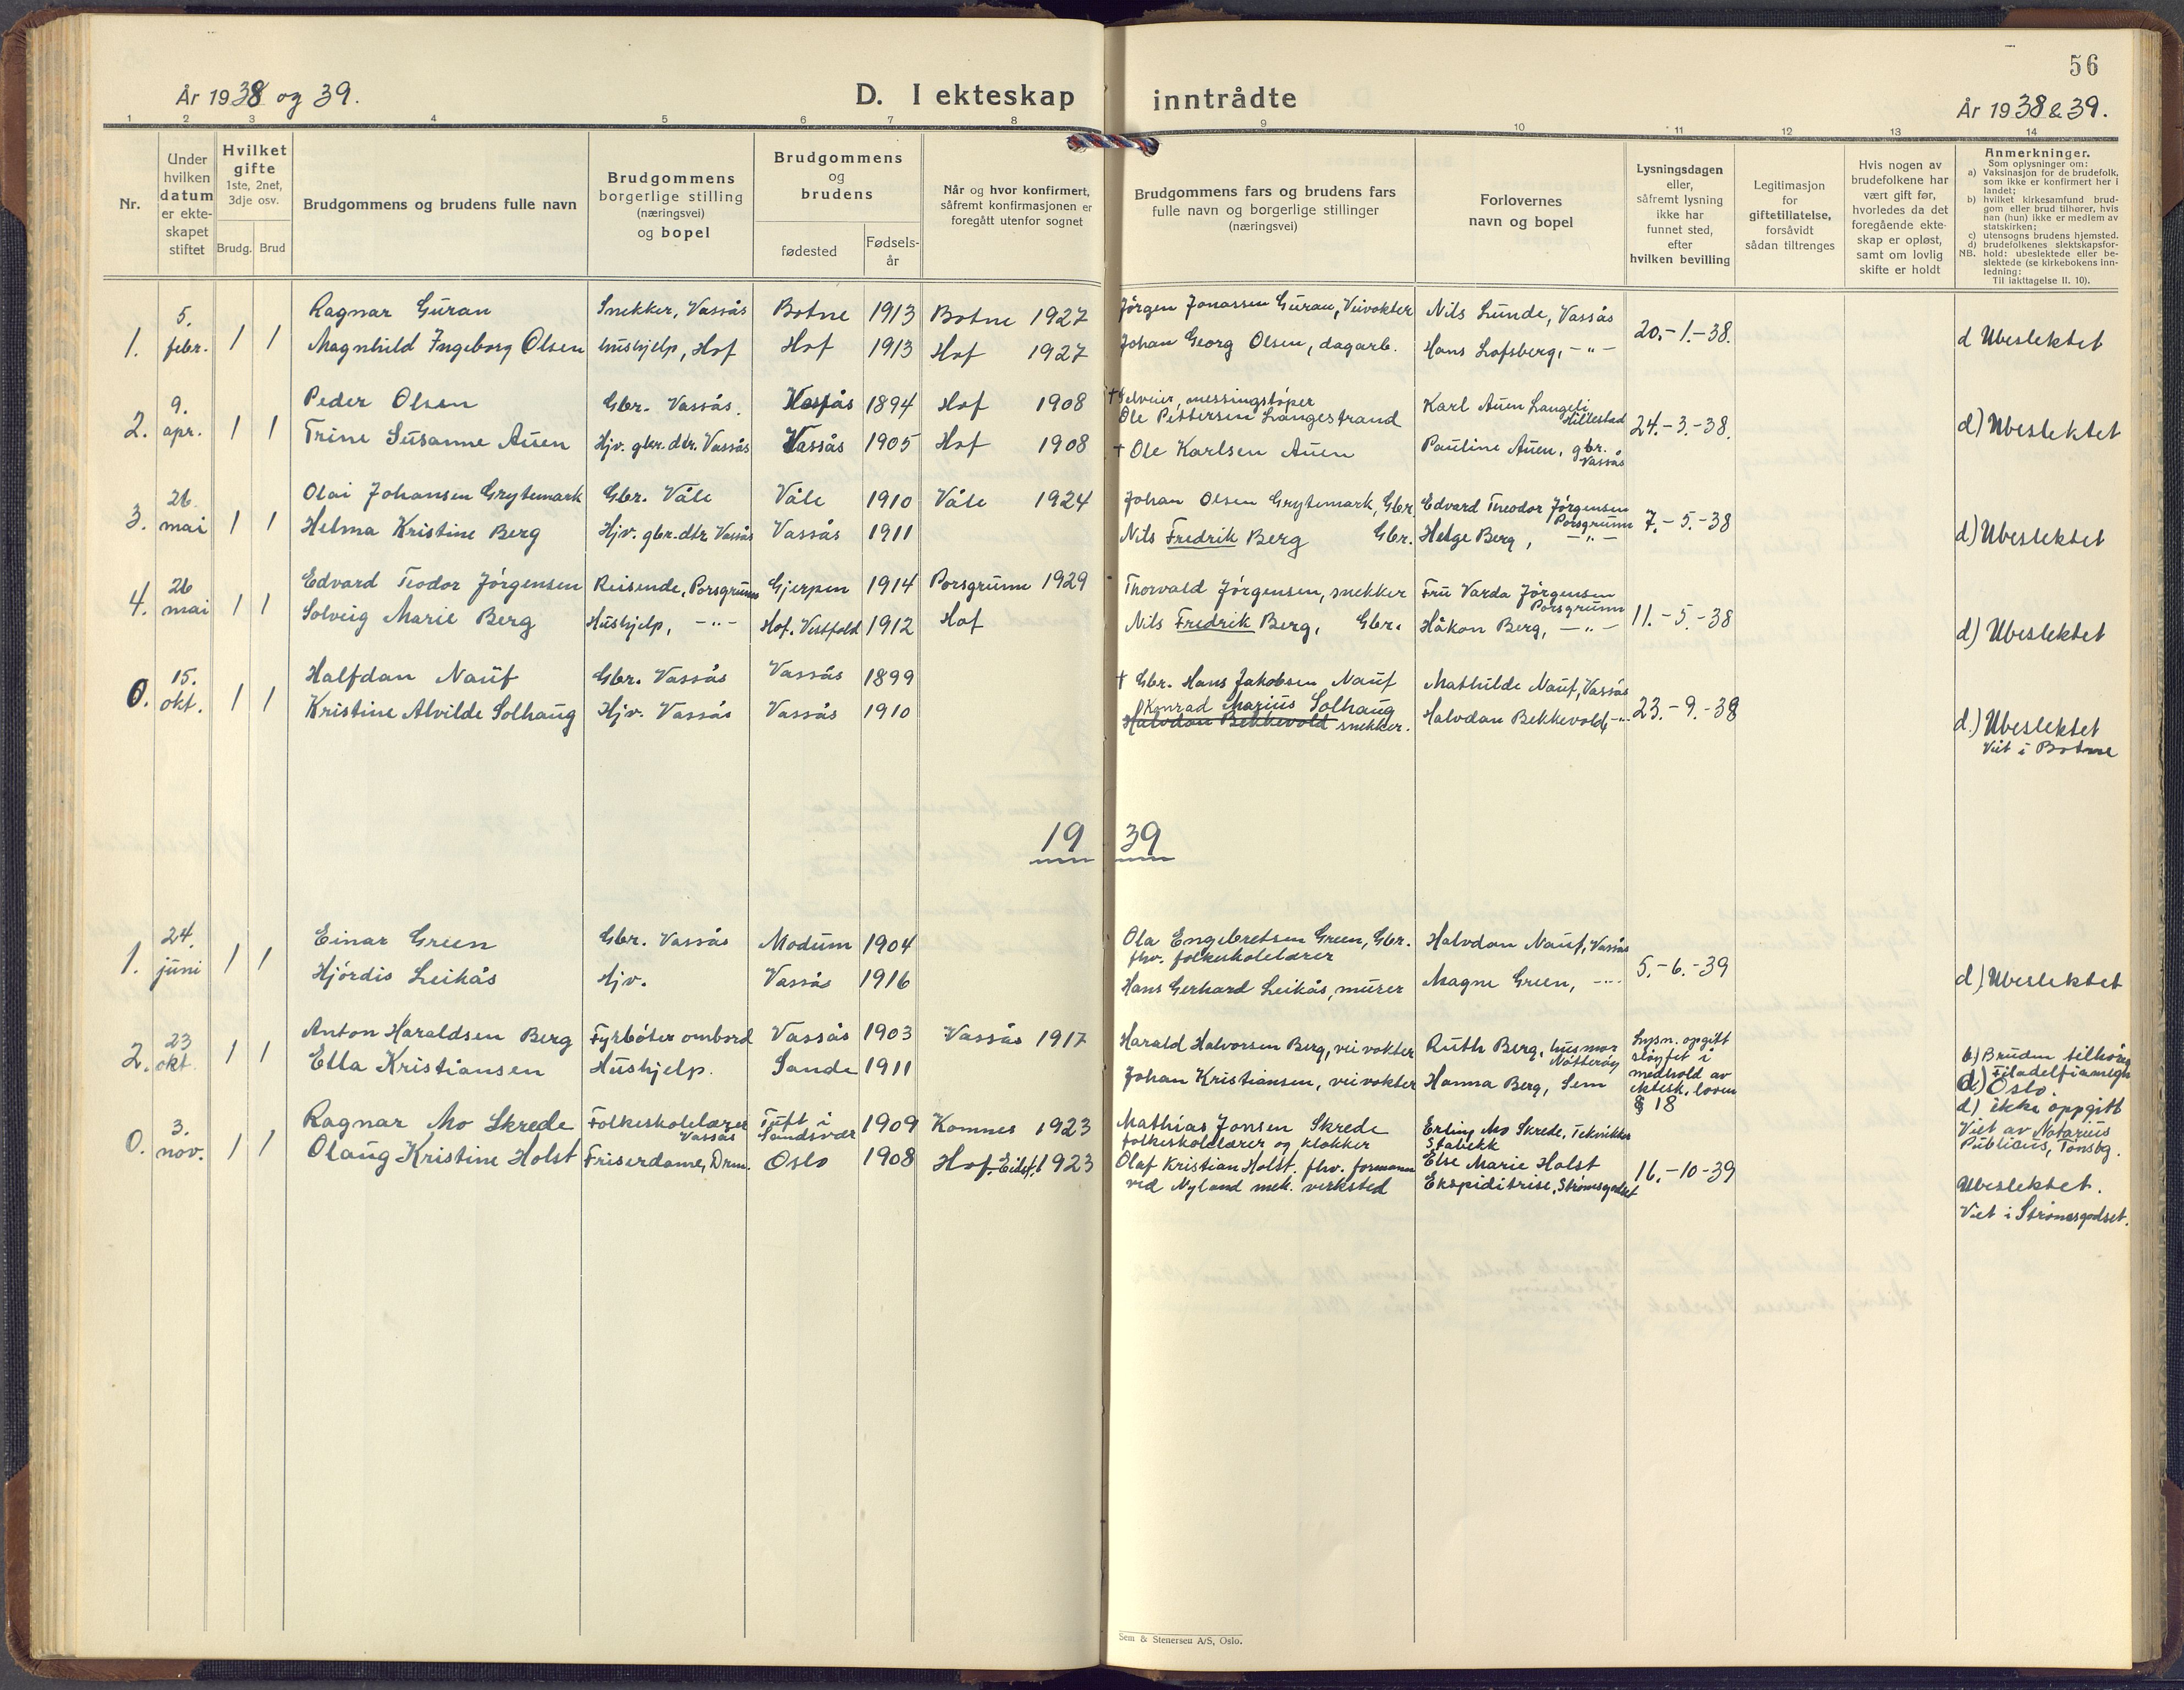 56
År 1938 og 39.
D. I ekteskap inntrådte
År 1938 & 39.
1 2 3 4 5 6 7 8 9 10 11 12 13 14
Nr.
Under hvilken datum er ekteskapet stiftet
Hvilket gifte
1ste, 2net, 3dje osv.
Brudg. Brud
Brudgommens og brudens fulle navn
Brudgommens borgerlige stilling (næringsvei) og bopel
Brudgommens og brudens
fødested
Fødselsår
Når og hvor konfirmert, såfremt konfirmasjonen er foregått utenfor sognet
Brudgommens fars og brudens fars fulle navn og borgerlige stillinger (næringsvei)
Forlovernes navn og bopel
Lysningsdagen eller, såfremt lysning ikke har funnet sted, efter hvilken bevilling
Legitimasjon for giftetillatelse, forsåvidt sådan tiltrenges
Hvis nogen av brudefolkene har vært gift før, hvorledes da det foregående ekteskap er opløst, samt om lovlig skifte er holdt
Anmerkninger.
Som oplysninger om:
a) Vaksinasjon for de brudefolk, som ikke er konfirmert her i landet;
b) hvilket kirkesamfund brudgom eller brud tilhører, hvis han (hun) ikke er medlem av statskirken;
c) utensogns brudens hjemsted.
d) brudefolkenes slektskapsforhold: ubeslektede eller beslektede (se kirkebokens innledning:
NB.
Til iakttagelse II. 10).
1. 5. febr. 1 1
Ragnar Guran Snekker, Vassås Botne 1913 Botne 1927 Jörgen Jonassen Guran, Veivokter Nils Lunde, Vassås
20.-1.-38.
Magnhild Ingeborg Olsen Hushjelp, Hof Hof 1913 Hof 1927 Johan Georg Olsen, dagarb. Hans Lofsberg, -"-
d Ubeslektet
2. 9. apr. 1 1
Peder Olsen Gbr. Vassås. Vassås 1894 Hof 1908 † Selveier, messingstöper
Ole Pettersen Langestrand Karl Auen Langeli Hillestad
24.-3.-38.
Trine Susanne Auen Hjv. gbr.dtr. Vassås Vassås 1905 Hof 1908 † Ole Karlsen Auen Pauline Auen, gbr. Vassås
d) Ubeslektet
3. 26. mai 1 1
Olai Johansen Grytemark Gbr. Våle Våle 1910 Våle 1924 Johan Olsen Grytemark, Gbr Edvard Theodor Jörgensen Porsgrunn
7.-5.-38
Helma Kristine Berg Hjv. gbr.dtr Vassås Vassås 1911 Nils Fredrik Berg Gbr. Helge Berg, -"-
d) Ubeslektet
4. 26 mai 1 1
Edvard Teodor Jörgensen Reisende, Porsgrunn Gjerpen 1914 Porsgrunn 1929 Thorvald Jörgensen, snekker Fru Varda Jörgensen Porsgrunn
11.-5.-38
Solveig Marie Berg Hushjelp, -"- Hof, Vestfold 1912 Hof Nils Fredrik Berg, Gbr. Håkon Berg, -"-
d) Ubeslektet
0. 15. okt. 1 1
Halfdan Nauf Gbr. Vassås Vassås 1899 † Gbr. Hans Jakobsen Nauf Mathilde Nauf, Vassås
23.-9.-38
Kristine Alvilde Solhaug Hjv. Vassås Vassås 1910 Konrad Marius Solhaug
Halvdan Bekkevold snekker. Halvdan Bekkevold, -"-
d.) Ubeslektet
Viet i Botne
1939
1. 24. juni 1 1
Einar Green Gbr. Vassås Modum 1904 Ola Engebretsen Green, Gbr.
fhv. folkeskolelærer Halvdan Nauf, Vassås
5.-6.-39
Hjördis Leikås Hjv. Vassås 1916 Hans Gerhard Leikås, murer Magne Green, -"-
d) Ubeslektet
2. 23 okt. 1 1
Anton Haraldsen Berg Fyrböter ombord Vassås 1903 Vassås 1917 Harald Halvorsen Berg, veivokter Ruth Berg, husmor Nötteröy
Lysn. opgitt slöyfet i medhold av ektesk.loven § 18
Ella Kristiansen Hushjelp. Sande 1911 Johan Kristiansen, veivokter Hanna Berg, Sem
b) Bruden tilhörer
Filadelfiamegh.
d) Oslo.
d) ikke oppgitt
Viet av Notarius
Publicus, Tönsbg.
0. 3. nov. 1 1
Ragnar Mo Skrede Folkeskolelærer Vassås Tuft i Sandsvær 1909 Komnes 1923 Mathias Jonsen Skrede
folkeskolelærer og klokker Erling Mo Skrede, Tekniker
Stabekk
16.-10-39
Olaug Kristine Holst Friserdame, Drm. Oslo 1908 Hof. Eidsf. 1923 Olaf Kristian Holst. fhv. formann
ved Nyland mek. verksted Else Marie Holst
Ekspiditrise, Strömsgodset
Ubeslektet.
Viet i Strömsgodset.
Sem & Stenersen A/S, Oslo.